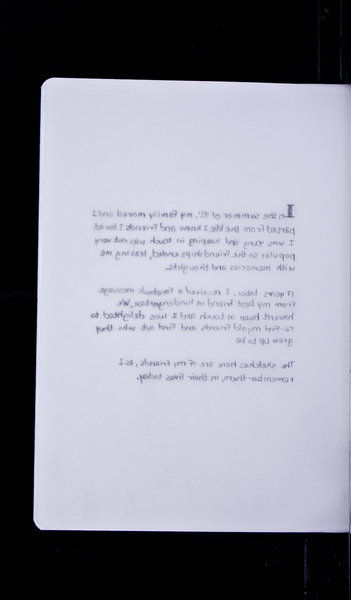 In the summer of '91, my family moved and I
parted from the life I knew and friends I loved.
I was young and keeping in touch was not very
popular so the friendships ended, leaving me
with memories and thoughts.
17 years later, I received a Facebook message
from my best friend in kindergarten. We
haven't been in touch and I was delighted to
re-find my old friends and find out who they
grew up to be
The sketches here are of my friends, as I
remember them, in their lives today.